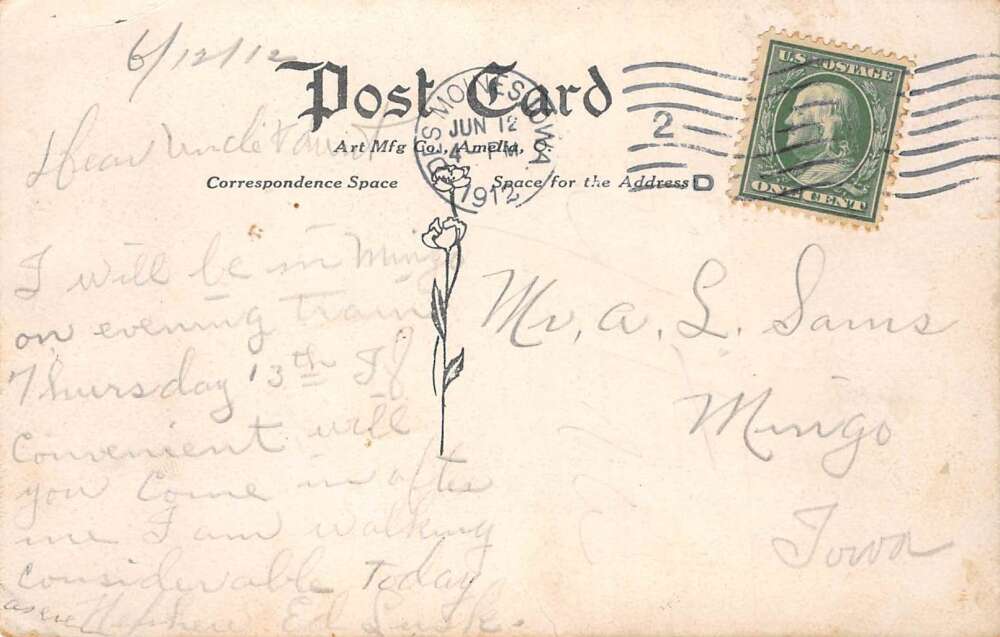 6/12/12
Post Card
Art Mfg Co., Amelia, O.
Correspondence Space
Space for the Address
DES MOINES, IOWA
JUN 12
4 PM
1912
2
D
U.S. POSTAGE
ONE CENT
Dear Uncle & Aunt
I will be in Mingo
on evening train
Thursday 13th If
convenient will
you come in after
me I am walking
considerable today
Nephew Ed
Mr. A. L. Sams
Mingo
Iowa